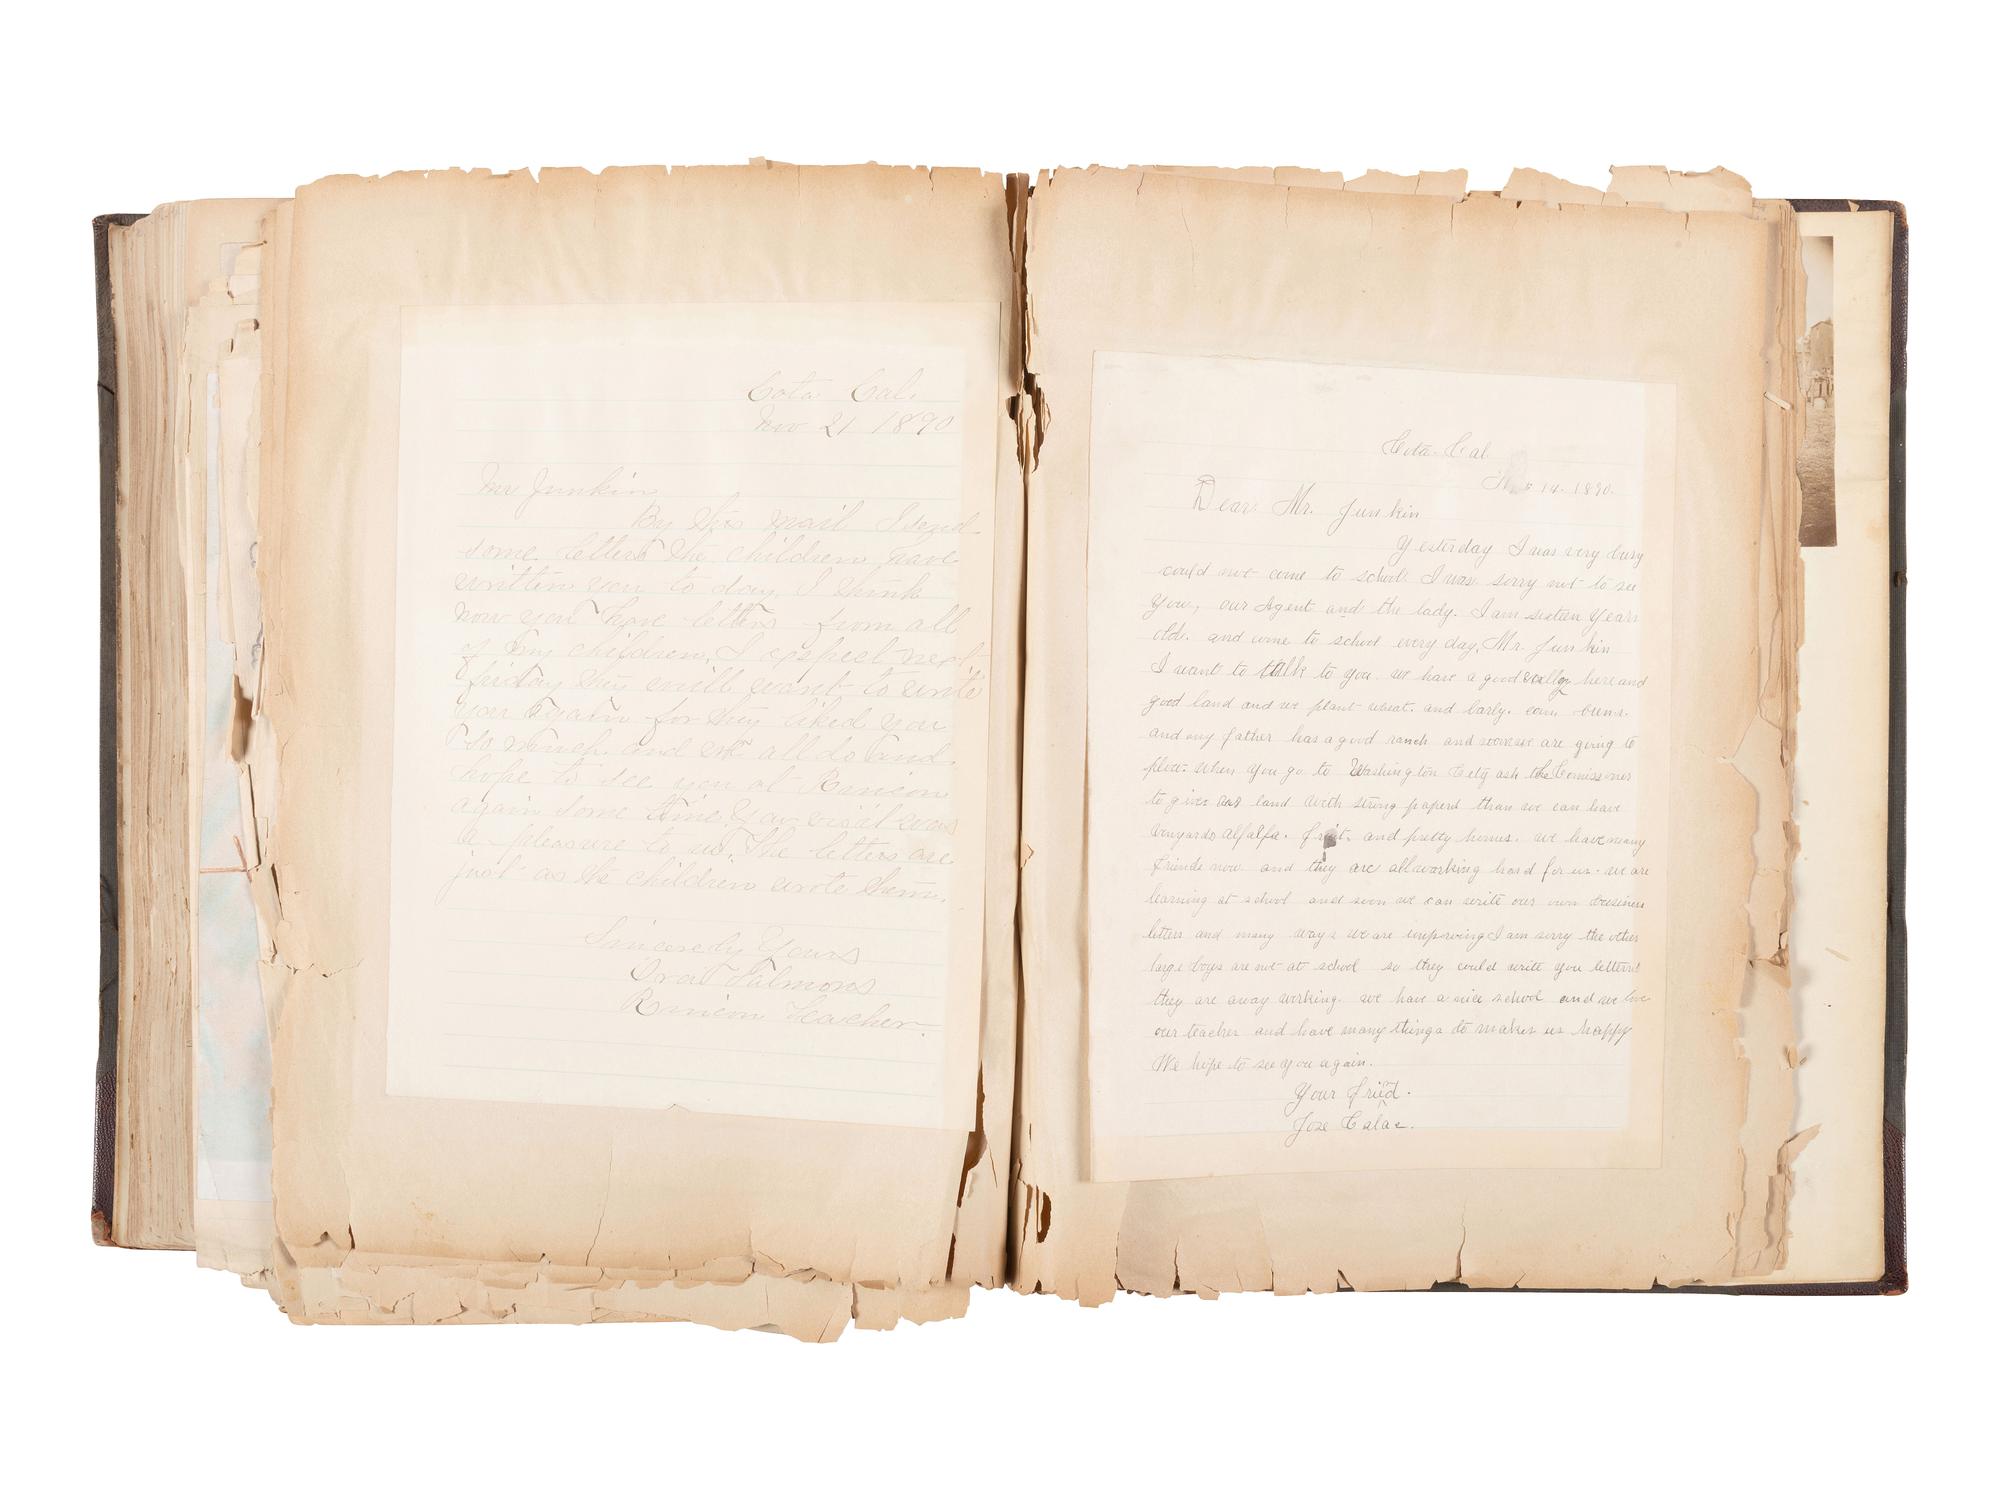 Cota Cal.
Nov 21 1890
Mr Junkin
By this mail I send
some letters the children have
written you to day. I think
now you have letters from all
of my children. I expect next
friday they will want to write
you again for they liked you
so much. and we all do and
hope to see you at Rincon
again some time. Your visit was
a pleasure to us. The letters are
just as the children wrote them.
Sincerely Yours
Ora Salmons
Rincon Teacher.
Cota. Cal.
14. 1890.
Dear Mr. Junkin
Yesterday I was very busy
could not come to school. I was sorry not to see
you, our Agent and the lady. I am sixteen years
old. and come to school every day. Mr. Junkin
I want to talk to you. we have a good vally here and
good land and we plant wheat. and barly. corn, beens.
and my father has a good ranch and we are going to
plow. when you go to Washington City ask the Comissoner
to give us land with strong paperd than we can have
vinyards alfalfa. fruit. and pretty homes. we have many
friends now. and they are all working hard for us. we are
learning at school and soon we can write our own business
letters and many ways we are improving I am sorry the other
large boys are not at school so they could write you letters
they are away working. we have a nice school and we love
our teacher and have many things to makes us happy
We hope to see you again.
Your friend.
Jose Calac.